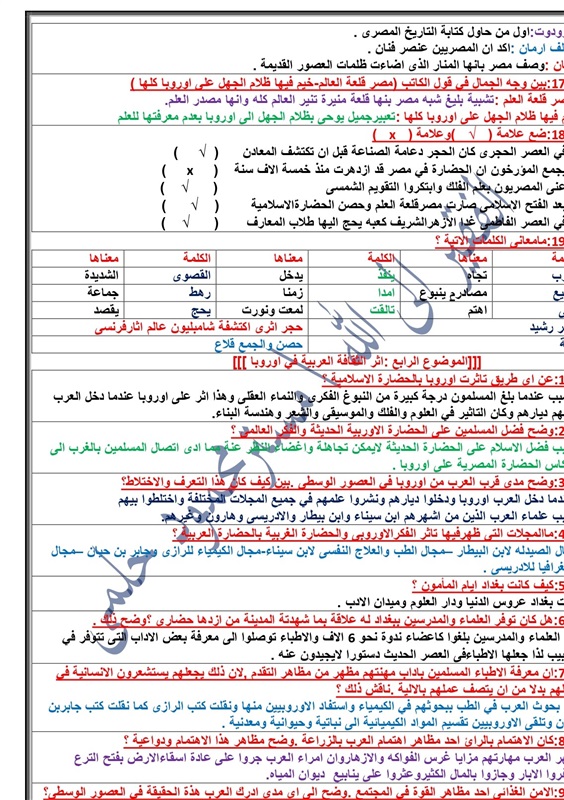 رودوت:اول من حاول كتابة التاريخ المصرى .
لف ارمان :اكد ان المصريين عنصر فنان .
ان :وصف مصر بانها المنار الذى اضاءت ظلمات العصور القديمة .
17:بين وجه الجمال في قول الكاتب (مصر قلعة العالم-خيم فيها ظلام الجهل على اوروبا كلها )
ر قلعة العلم :تشبية بليغ شبه مصر بنها قلعة منيرة تنير العالم كله وانها مصدر العلم.
م فيها ظلام الجهل على اوروبا كلها :تعبيرجميل يوحى بظلام الجهل الى اوروبا بعدم معرفتها للعلم
18:ضع علامة ( √ )وعلامة ( x )
في العصر الحجرى كان الحجر دعامة الصناعة قبل ان تكتشف المعادن ( √ )
يجمع المؤرخون ان الحضارة في مصر قد ازدهرت منذ خمسة الاف سنة ( x )
عنى المصريون بعلم الفلك وابتكروا التقويم الشمسى ( √ )
بعد الفتح الاسلامى صارت مصرقلعة العلم وحصن الحضارةالاسلامية ( √ )
في العصر الفاطمى غدا الأزهرالشريف كعبه يحج اليها طلاب المعارف ( √ )
19:مامعانى الكلمات الاتية ؟
مة معناها الكلمة معناها الكلمة معناها
ب تجاه ينفذ يدخل القصوى الشديدة
يع مصادرم ينبوع امدا زمنا رهط جماعة
ى اهتم تالقت لمعت ونورت يحج يقصد
ر رشيد حجر اثرى اكتشفة شامبليون عالم اثارفرنسى
ة حصن والجمع قلاع
[[[الموضوع الرابع :اثر الثقافة العربية في اوروبا ]]]
1:عن اى طريق تاثرت اوروبا بالحضارة الاسلامية ؟
سبب عندما بلغ المسلمون درجة كبيرة من النبوغ الفكرى والنماء العقلى وهذا اثر على اوروبا عندما دخل العرب
هم ديارهم وكان التاثير في العلوم والفلك والموسيقى والشعر وهندسة البناء.
2:وضح فضل المسلمين على الحضارة الاوربية الحديثة والفكر العالمى ؟
يب فضل الاسلام على الحضارة الحديثة لايمكن تجاهلة واغضاء النظر عنة مما ادى اتصال المسلمين بالغرب الى
كاس الحضارة المصرية على اوروبا .
3:وضح مدى قرب العرب من اوروبا في العصور الوسطى .بين كيف كان هذا التعرف والاختلاط؟
ندما دخل العرب اوروبا ودخلوا ديارهم ونشروا علمهم في جميع المجلات المختلفة واختلطوا بيهم
ب علماء العرب الذين من اشهرهم ابن سيناء وابن بيطار والادريسى وهارون وغيرهم.
4:ماالمجلات التى ظهرفيها تاثر الفكرالاوروبى والحضارة الغربية بالحضارة العربية ؟
ال الصيدله لابن البيطار –مجال الطب والعلاج النفسى لابن سيناء-مجال الكيمياء للرازى وجابر بن حيان –مجال
غرافيا للادريسى .
5:كيف كانت بغداد ايام المأمون ؟
ت بغداد عروس الدنيا ودار العلوم وميدان الادب .
6:هل كان توفر العلماء والمدرسين ببغداد له علاقة بما شهدتة المدينة من ازدها حضارى ؟وضح ذلك .
العلماء والمدرسين بلغوا كاعضاء ندوة نحو 6 الاف والاطباء توصلوا الى معرفة بعض الاداب التى تتوفر في
بيب لذا جعلها الاطباءفى العصر الحديث دستورا لايجيدون عنه .
7:ان معرفة الاطباء المسلمين باداب مهنتهم مظهر من مظاهر التقدم ,لان ذلك يجعلهم يستشعرون الانسانية في
لهم بدلا من ان يتصف عملهم بالالية .ناقش ذلك ؟
بحوث العرب في الطب ببحوثهم في الكيمياء واستفاد الاوروبيين منها ونقلت كتب الرازى كما نقلت كتب جابربن
ن وتلقى الاوروبيين تقسيم المواد الكيميائية الى نباتية وحيوانية ومعدنية .
8:كان الاهتمام بالرائ احد مظاهر اهتمام العرب بالزراعة .وضح مظاهر هذا الاهتمام ودواعية ؟
هر العرب مهارتهم مزايا غرس الفواكه والازهاروان امراء العرب جروا على عادة اسقاءالارض بفتح الترع
فروا الابار وجازوا بالمال الكثيروعثروا على ينابيع ديوان المياه.
9:الامن الغذائى احد مظاهر القوة في المجتمع .وضح الى اى مدى ادرك العرب هذة الحقيقة في العصور الوسطى؟